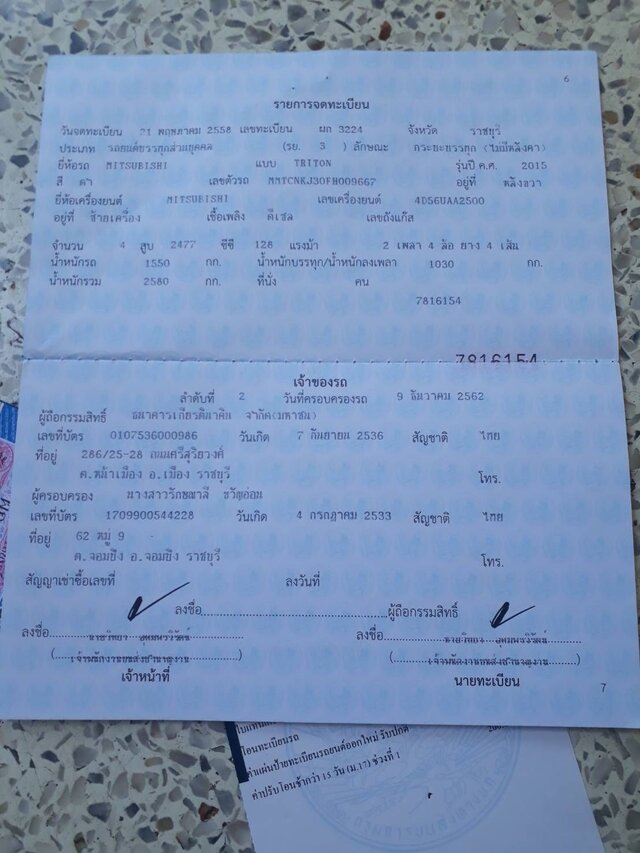 6
รายการจดทะเบียน
วันจดทะเบียน 21 พฤษภาคม 2558 เลขทะเบียน ผก 3224 จังหวัด ราชบุรี
ประเภท รถยนต์บรรทุกส่วนบุคคล (รย. 3 ) ลักษณะ กระบะบรรทุก (ไม่มีหลังคา)
ยี่ห้อรถ MITSUBISHI แบบ TRITON รุ่นปี ค.ศ. 2015
สี ดำ เลขตัวรถ MMTCNKJ30FH009667 อยู่ที่ หลังขวา
ยี่ห้อเครื่องยนต์ MITSUBISHI เลขเครื่องยนต์ 4D56UAA2500
อยู่ที่ ซ้ายเครื่อง เชื้อเพลิง ดีเซล เลขถังแก๊ส
จำนวน 4 สูบ 2477 ซีซี 128 แรงม้า 2 เพลา 4 ล้อ ยาง 4 เส้น
น้ำหนักรถ 1550 กก. น้ำหนักบรรทุก/น้ำหนักลงเพลา 1030 กก.
น้ำหนักรวม 2580 กก. ที่นั่ง คน
7816154
7816154
เจ้าของรถ
ลำดับที่ 2 วันที่ครอบครองรถ 9 ธันวาคม 2562
ผู้ถือกรรมสิทธิ์ ธนาคารเกียรตินาคิน จำกัด(มหาชน)
เลขที่บัตร 0107536000986 วันเกิด 7 กันยายน 2536 สัญชาติ ไทย
ที่อยู่ 286/25-28 ถนนศรีสุริยวงศ์
ต.หน้าเมือง อ.เมือง ราชบุรี โทร.
ผู้ครอบครอง นางสาวรักษณาลี ขวัญอ่อน
เลขที่บัตร 1709900544228 วันเกิด 4 กรกฎาคม 2533 สัญชาติ ไทย
ที่อยู่ 62 หมู่ 9
ต.จอมบึง อ.จอมบึง ราชบุรี โทร.
สัญญาเช่าซื้อเลขที่ ลงวันที่
ลงชื่อ ผู้ถือกรรมสิทธิ์
ลงชื่อ ลงชื่อ
(เจ้าพนักงานขนส่งชำนาญงาน) (เจ้าพนักงานขนส่งชำนาญงาน)
เจ้าหน้าที่ นายทะเบียน
7
โอนทะเบียนรถ
ค่าแผ่นป้ายทะเบียนรถยนต์ออกใหม่ รับปกติ
ค่าปรับโอนช้ากว่า 15 วัน (ม.17) ช่วงที่ 1